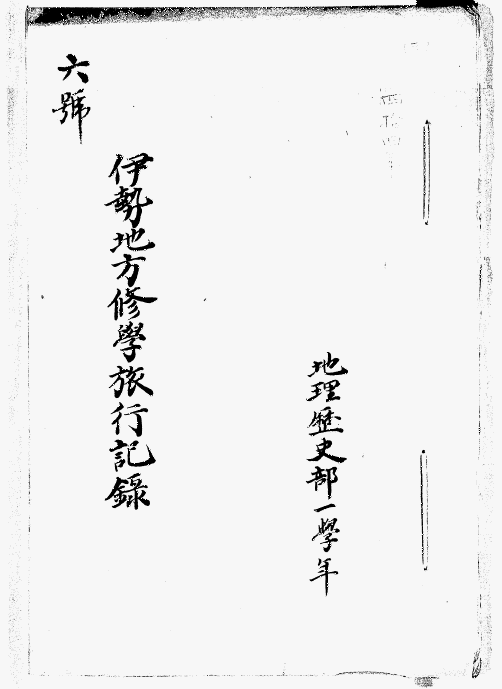 地理歷史部一學年
伊勢地方修學旅行記錄
六號